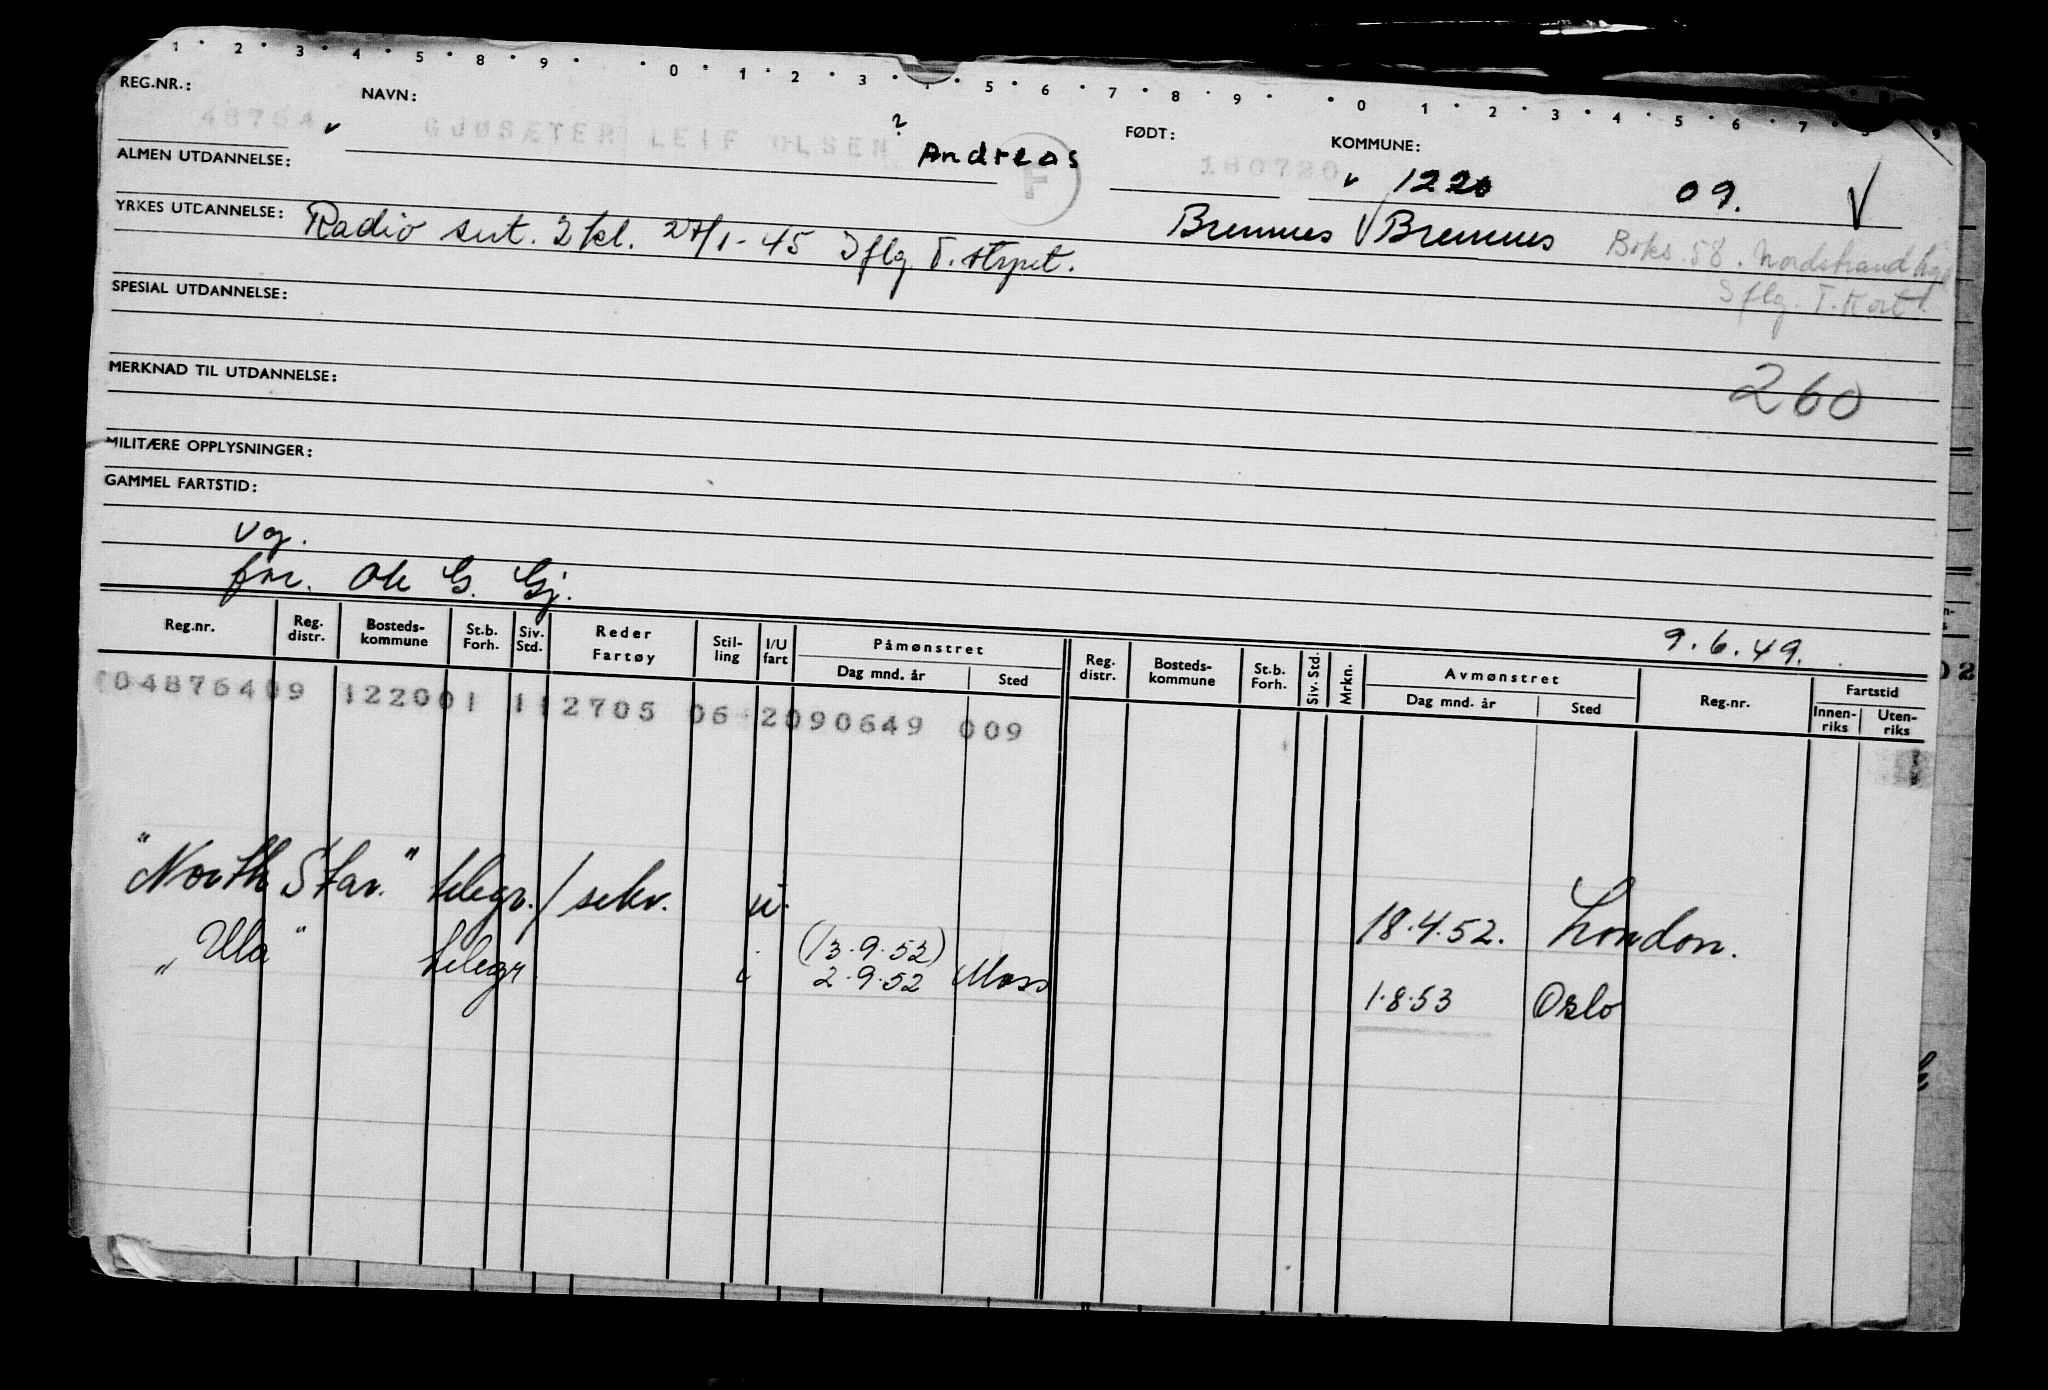 1 · 2 · 3 · 4 · 5 · 8 · 9 · · 0 · 1 · 2 · 3 · 4 · 5 · 6 · 7 · 8 · 9 · · 0 1 · 2 · 3 · 4 · 5 · 6 · 7 · 8 · 9
REG.NR.: NAVN: FØDT: KOMMUNE:
48764 v GJØSÆTER LEIF OLSEN ? Andreas F 180720 v 1220 09. V
ALMEN UTDANNELSE:
Bremnes V Bremnes Boks. 58. Nordstrand
YRKES UTDANNELSE: Radio sert. 2 kl. 27/1-45 Iflg. T. strpet.
Iflg. T. Kort.
SPESIAL UTDANNELSE:
MERKNAD TIL UTDANNELSE:
260
MILITÆRE OPPLYSNINGER:
GAMMEL FARTSTID:
vg.
far. Ole G. Gj.
9.6.49.
Reg.nr. Reg. distr. Bosteds-kommune St.b. Forh. Siv. Std. Reder Fartøy Stil-ling I/U fart Påmønstret Dag mnd. år Sted Reg. distr. Bosteds-kommune St.b. Forh. Siv. Std. Mrkn. Avmønstret Dag mnd. år Sted Reg.nr. Fartstid Innen-riks Uten-riks
04876409 122001 11 2705 06 2090649 009
"North Star." telegr./sekr. u. 18.4.52. London.
"Ula" telegr. i (13.9.52)
2.9.52 Moss 1.8.53 Oslo